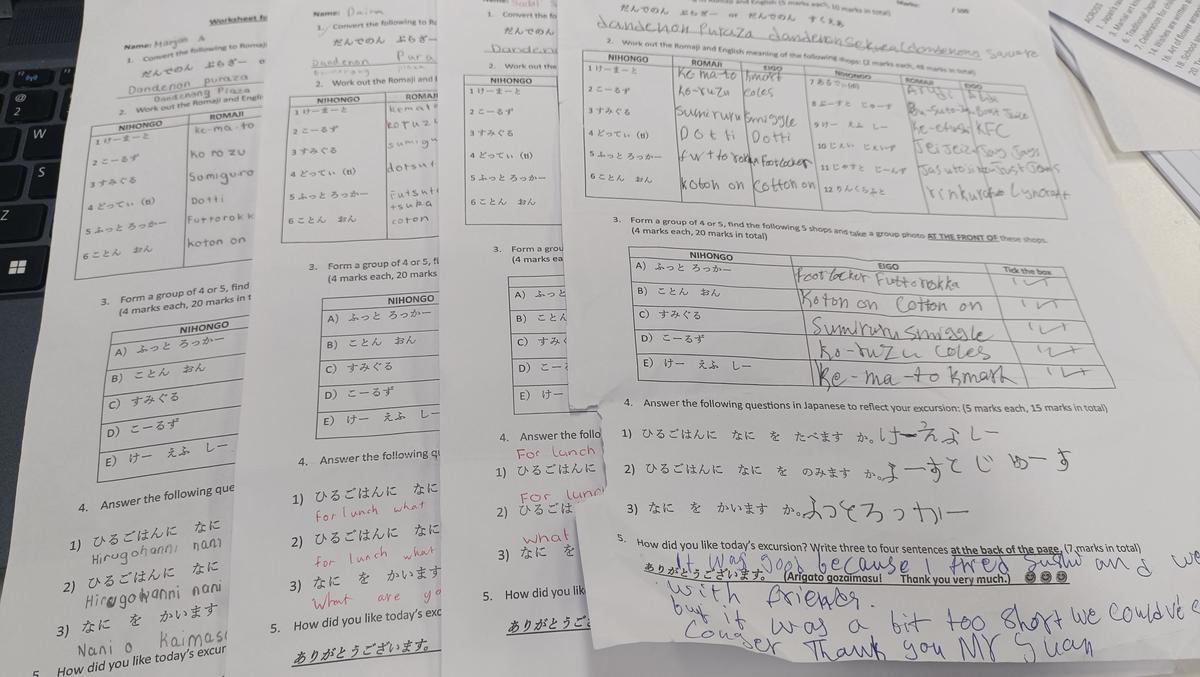 Worksheet fo
Name: Marjan A
1. Convert the following to Romaji
だんでのん ぷらざー
Dandenon puraza
Dandenong Plaza
2. Work out the Romaji and Engli
NIHONGO ROMAJI
1 けーまーと ke-ma-to
2 こーるず ko rozu
3 すみぐる Somiguro
4 どってぃ (ti) Dotti
5 ふっと ろっかー Futtorokk
6 ことん おん koton on
3. Form a group of 4 or 5, find
(4 marks each, 20 marks in t
NIHONGO
A) ふっと ろっかー
B) ことん おん
C) すみぐる
D) こーるず
E) けー えふ しー
4. Answer the following que
1) ひるごはんに なに
Hirugohanni nani
2) ひるごはんに なに
Hirugohanni nani
3) なに を かいます
Nani o Kaimas
5. How did you like today's excur
Name: Daira
1. Convert the following to Ro
だんでのん ぷらざー
Dandenon Pura
2. Work out the Romaji and
NIHONGO ROMAJ
1 けーまーと kemat
2 こーるず koruz
3 すみぐる sumigu
4 どってぃ (ti) dotsu
5 ふっと ろっかー
6 ことん おん coton
3. Form a group of 4 or 5, fi
(4 marks each, 20 marks
NIHONGO
A) ふっと ろっかー
B) ことん おん
C) すみぐる
D) こーるず
E) けー えふ しー
4. Answer the following q
1) ひるごはんに なに
For lunch what
2) ひるごはんに なに
for lunch what
3) なに を かいます
What are yo
5. How did you like today's exc
ありがとうございます。
Name:
1. Convert the
だんでのん
Danden
2. Work out the
NIHONGO
1 けーまーと
2 こーるず
3 すみぐる
4 どってぃ (ti)
5 ふっと ろっかー
6 ことん おん
3. Form a grou
(4 marks ea
A) ふっ
B) ことん
C) すみ
D) こー
E) けー
4. Answer the follo
For lunch
1) ひるごはんに
For lunn
2) ひるごは
what
3) なに を
5. How did you lik
ありがとうご
だんでのん ぷらざー or だんでのん すくえあ
dandenon Puraza dandenon Sekuea(dandenong Square
2. Work out the Romaji and English meaning of the following shops: (2 marks each, 48 marks in total)
NIHONGO ROMAJI EIGO NIHONGO ROMAJI EIGO
1 けーまーと ke-ma-to kmart
2 こーるず ko-ruzu coles
3 すみぐる Sumiruru Smiggle 9 けー えふ しー KFC
4 どってぃ (ti) Dotti Dotti 10 じぇい じぇいず Jeijeizu Jay Jays
5 ふっと ろっかー Footlocker 11 じゃすと じーんず Just Jeans
6 ことん おん koton on Cotton on 12 りんくらふと Lyncraft
3. Form a group of 4 or 5, find the following 5 shops and take a group photo AT THE FRONT OF these shops.
(4 marks each, 20 marks in total)
NIHONGO EIGO Tick the box
A) ふっと ろっかー footlocker Futtorokka
B) ことん おん Koton on Cotton on
C) すみぐる Sumiruru Smiggle
D) こーるず ko-ruzu coles
E) けー えふ しー ke-ma-to kmart
4. Answer the following questions in Japanese to reflect your excursion: (5 marks each, 15 marks in total)
1) ひるごはんに なに を たべます か。けーえふ しー
2) ひるごはんに なに を のみます か。
3) なに を かいます か。
5. How did you like today's excursion? Write three to four sentences at the back of the page. (7 marks in total)
It was good because I tried sushi and we
ありがとうございます。 (Arigato gozaimasu! Thank you very much.)
with friends.
but it was a bit too short we could've
Longer Thank you Mr